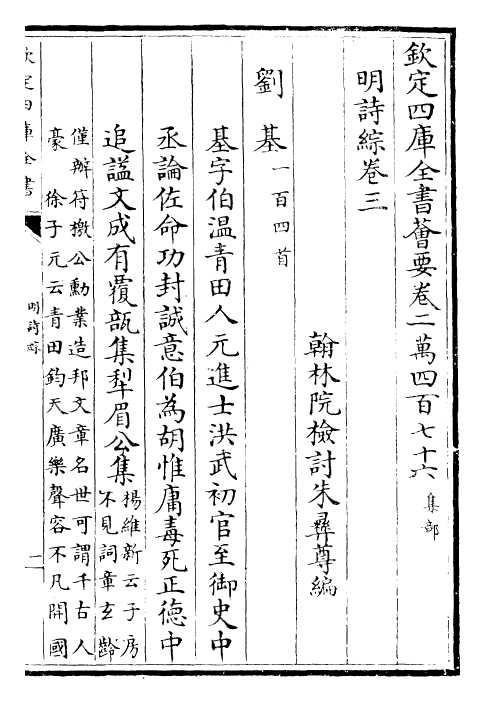 欽定四庫全書薈要卷二萬四百七十六 集部
明詩綜卷三
翰林院檢討朱彝尊編
劉基 一百四首
基字伯温青田人元進士洪武初官至御史中
丞論佐命功封誠意伯為胡惟庸毒死正徳中
追諡文成有覆瓿集犂眉公集
楊維新云子房
不見詞章𤣥齡
僅辦符檄公勳業造邦文章名世可謂千古人
豪 徐子元云青田鈞天廣樂聲容不凡開國
欽定四庫全書
明詩綜
一